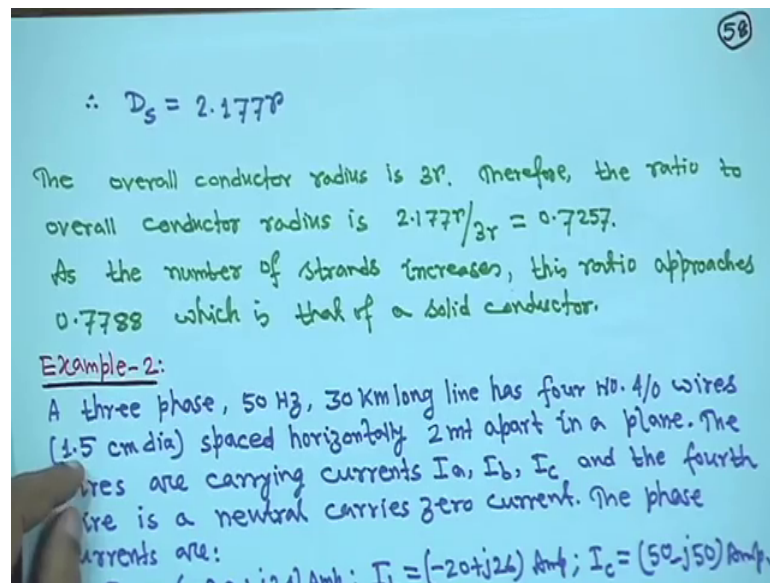 58
∴ Ds = 2.177r
The overall conductor radius is 3r. Therefore, the ratio to
overall conductor radius is 2.177r/3r = 0.7257.
As the number of strands increases, this ratio approaches
0.7788 which is that of a solid conductor.
Example-2:
A three phase, 50 Hz, 30 Km long line has four No. 4/0 wires
(1.5 cm dia) spaced horizontally 2 mt apart in a plane. The
ires are carrying currents Ia, Ib, Ic and the fourth
ire is a neutral carries zero current. The phase
urrents are:
Amp; I = (-20+j26) Amp; Ic = (50-j50) Amp.